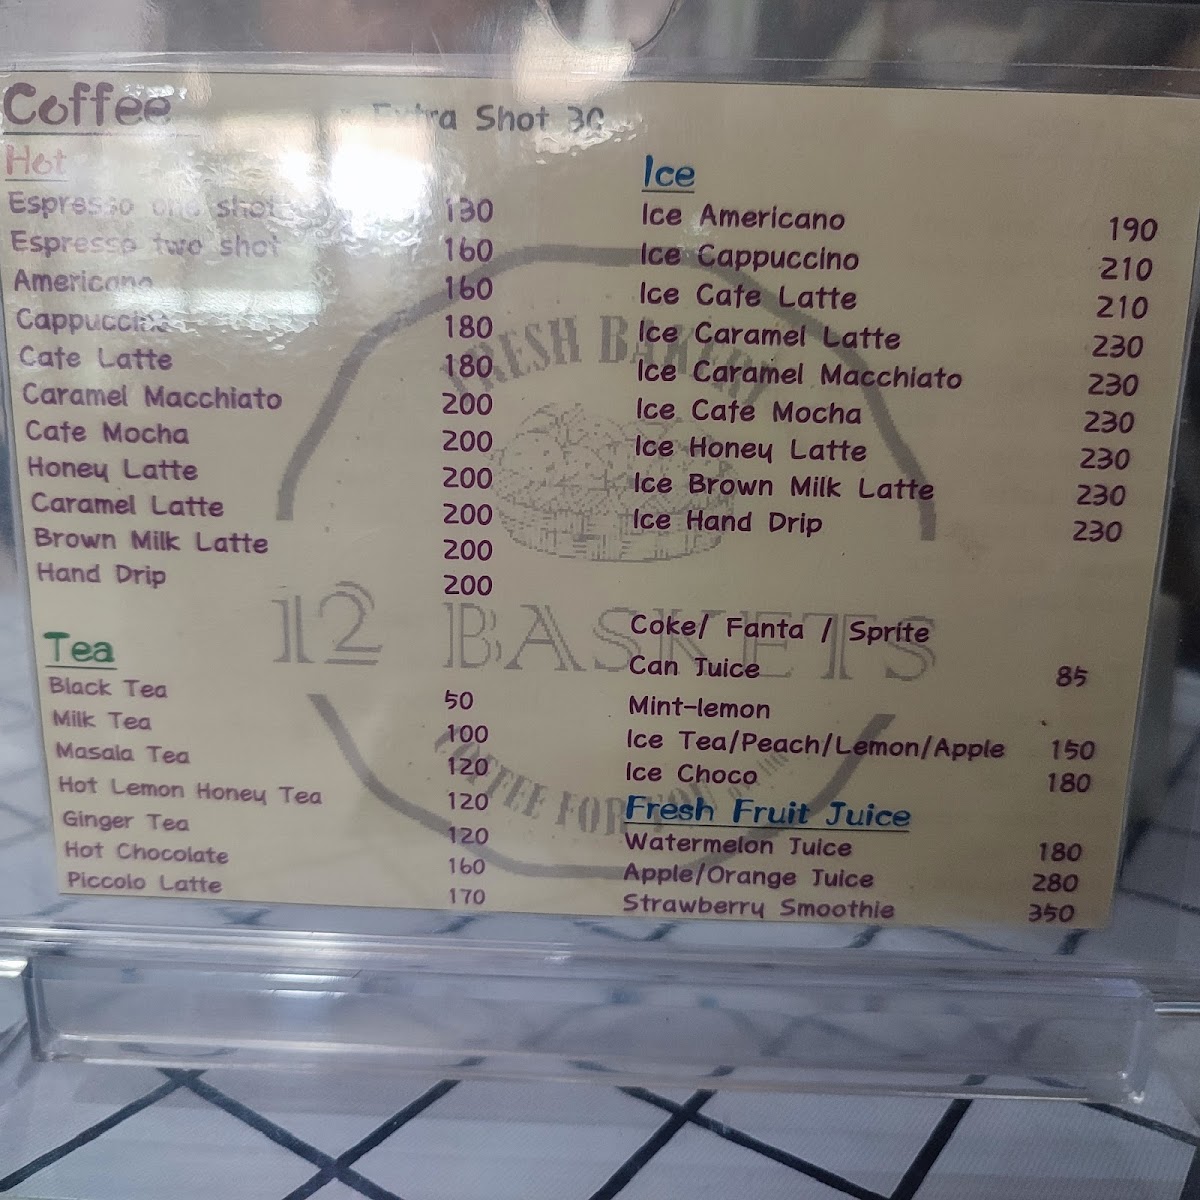 Coffee
Extra Shot 30
Hot
Espresso one shot 130
Espresso two shot 160
Americano 160
Cappuccino 180
Cafe Latte 180
Caramel Macchiato 200
Cafe Mocha 200
Honey Latte 200
Caramel Latte 200
Brown Milk Latte 200
Hand Drip 200
Tea
Black Tea 50
Milk Tea 100
Masala Tea 120
Hot Lemon Honey Tea 120
Ginger Tea 120
Hot Chocolate 160
Piccolo Latte 170
Ice
Ice Americano 190
Ice Cappuccino 210
Ice Cafe Latte 210
Ice Caramel Latte 230
Ice Caramel Macchiato 230
Ice Cafe Mocha 230
Ice Honey Latte 230
Ice Brown Milk Latte 230
Ice Hand Drip 230
Coke/ Fanta / Sprite
Can Juice 85
Mint-lemon
Ice Tea/Peach/Lemon/Apple 150
Ice Choco 180
Fresh Fruit Juice
Watermelon Juice 180
Apple/Orange Juice 280
Strawberry Smoothie 350
FRESH BAKERY
12 BASKETS
COFFEE FOR YOU